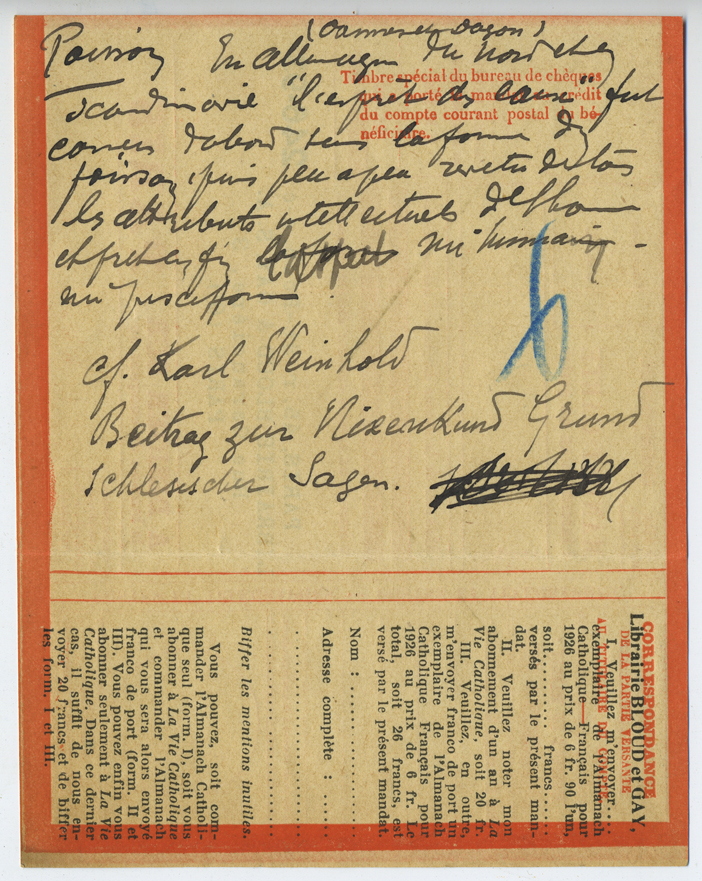 (Oannes et Dagon)
Poisson En allemagne du nord et en
Scandinavie "l'esprit des eaux" fut
conçu d'abord sous la forme du
poisson, puis peu a peu revetu de tous
les attributs intellectuels de l'homme
mi humain -
mi pisciforme.
cf. Karl Weinhold
Beitrag zur Nixenkund Grund
Schlesischer Sagen.
6
Timbre spécial du bureau de chèques
qui a porté le mandat au crédit
du compte courant postal du bé-
néficiaire.
CORRESPONDANCE
DE LA PARTIE VERSANTE
AU TITULAIRE DU COMPTE
Librairie BLOUD et GAY,
I. Veuillez m'envoyer....
exemplaire de l'Almanach
Catholique Français pour
1926 au prix de 6 fr. 90 l'un,
soit.......... francs.......
versés par le présent man-
dat.
II. Veuillez noter mon
abonnement d'un an à La
Vie Catholique, soit 20 fr.
III. Veuillez, en outre,
m'envoyer franco de port un
exemplaire de l'Almanach
Catholique Français pour
1926 au prix de 6 fr. Le
total, soit 26 francs, est
versé par le présent mandat.
Nom : ....................
Adresse complète : ........
Biffer les mentions inutiles.
Vous pouvez, soit com-
mander l'Almanach Catholi-
que seul (form. I), soit vous
abonner à La Vie Catholique
et commander l'Almanach
qui vous sera alors envoyé
franco de port (form. II et
III). Vous pouvez enfin vous
abonner seulement à La Vie
Catholique. Dans ce dernier
cas, il suffit de nous en-
voyer 20 francs et de biffer
les form. I et III.